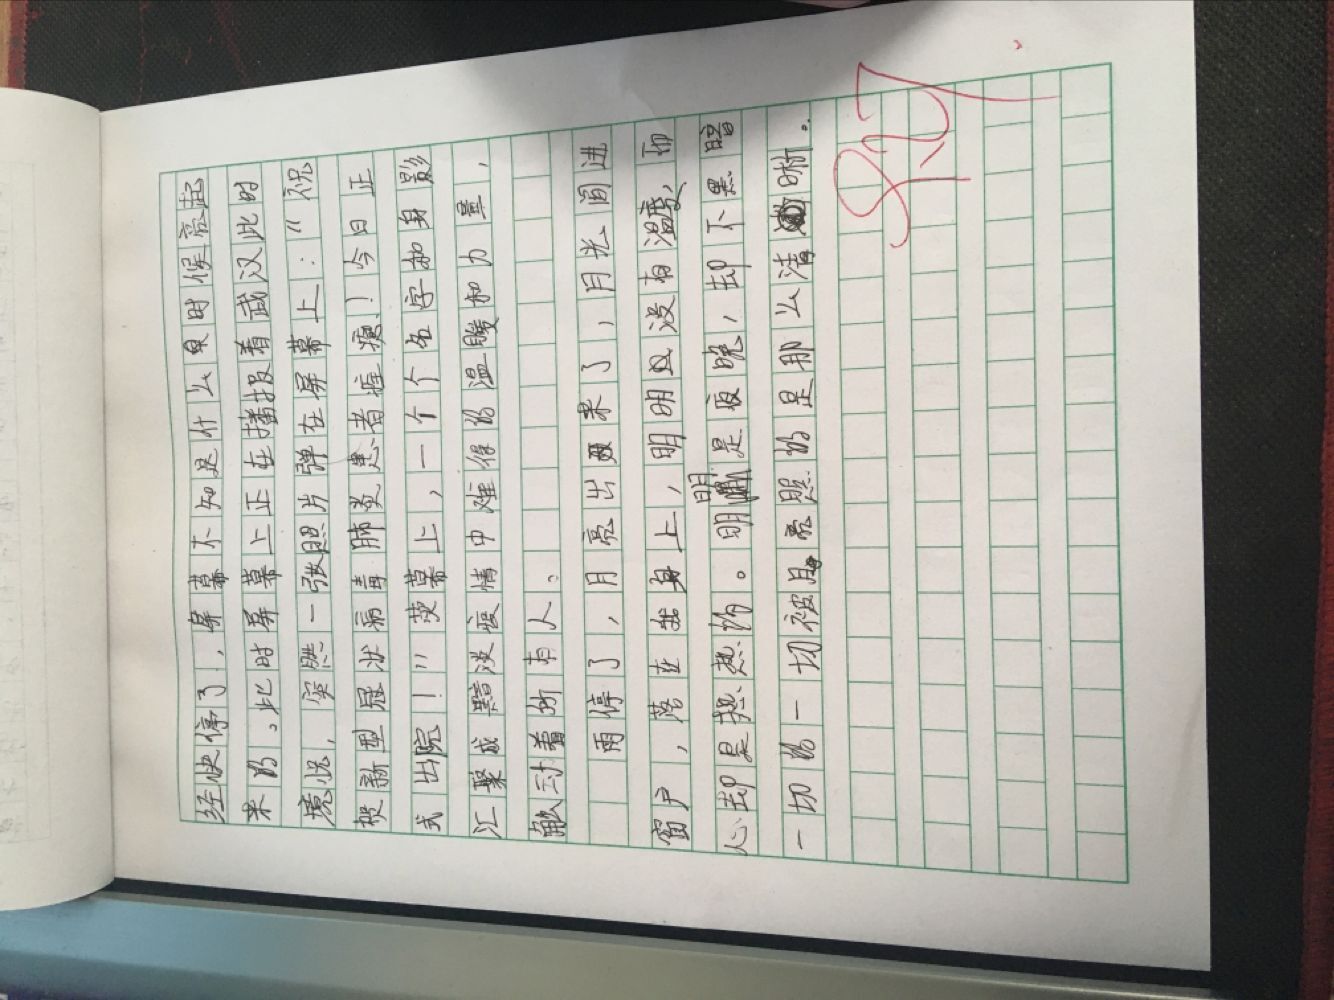 经快停了，屏幕不知是什么时候亮起
来的，此时屏幕上正在播报着武汉此时
境况，突然一张照片弹在屏幕上：“祝
被新型冠状病毒肺炎患者痊愈！今日正
式出院！”荧幕上，一个个名字和身影
汇聚成黯淡疫情中难得的温暖和力量，
触动着所有人。
雨停了，月亮出来了，月光洒进
窗户，落在我身上，明明没有温度，切
心却是热的。明明是夜晚，却不黑暗
一切的一切被月亮照的是那么清晰。